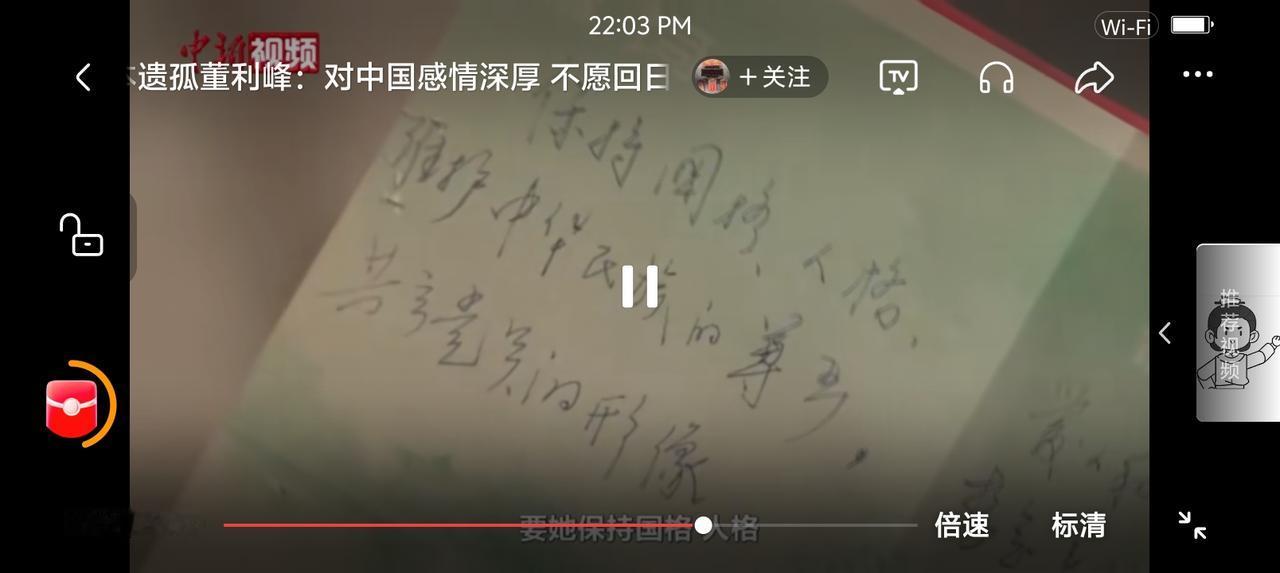 22:03 PM
Wi-Fi
中新视频
遗孤董利峰：对中国感情深厚 不愿回日
＋关注
TV
保持国格、人格，
维护中华民族的尊严，
共产党员的形象
推荐视频
要她保持国格 人格
倍速
标清